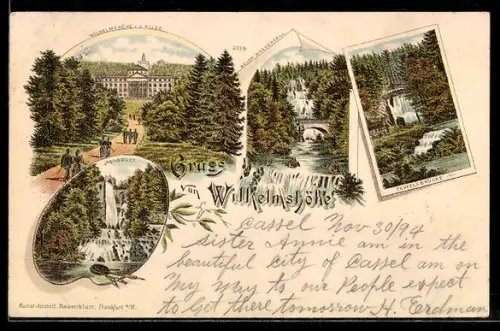 WILHELMSHÖHE
2099.
NEUER WASSERFALL
TEUFELSBRÜCKE
AQUADUCT
Gruss
von Wilhelmshöhe
Cassel Nov 30/94
sister Annie am in the
beautiful city of Cassel am on
My way to our People expect
to get there tomorrow H. Erdman
Kunst-Anstalt Rosenblatt, Frankfurt a/M.